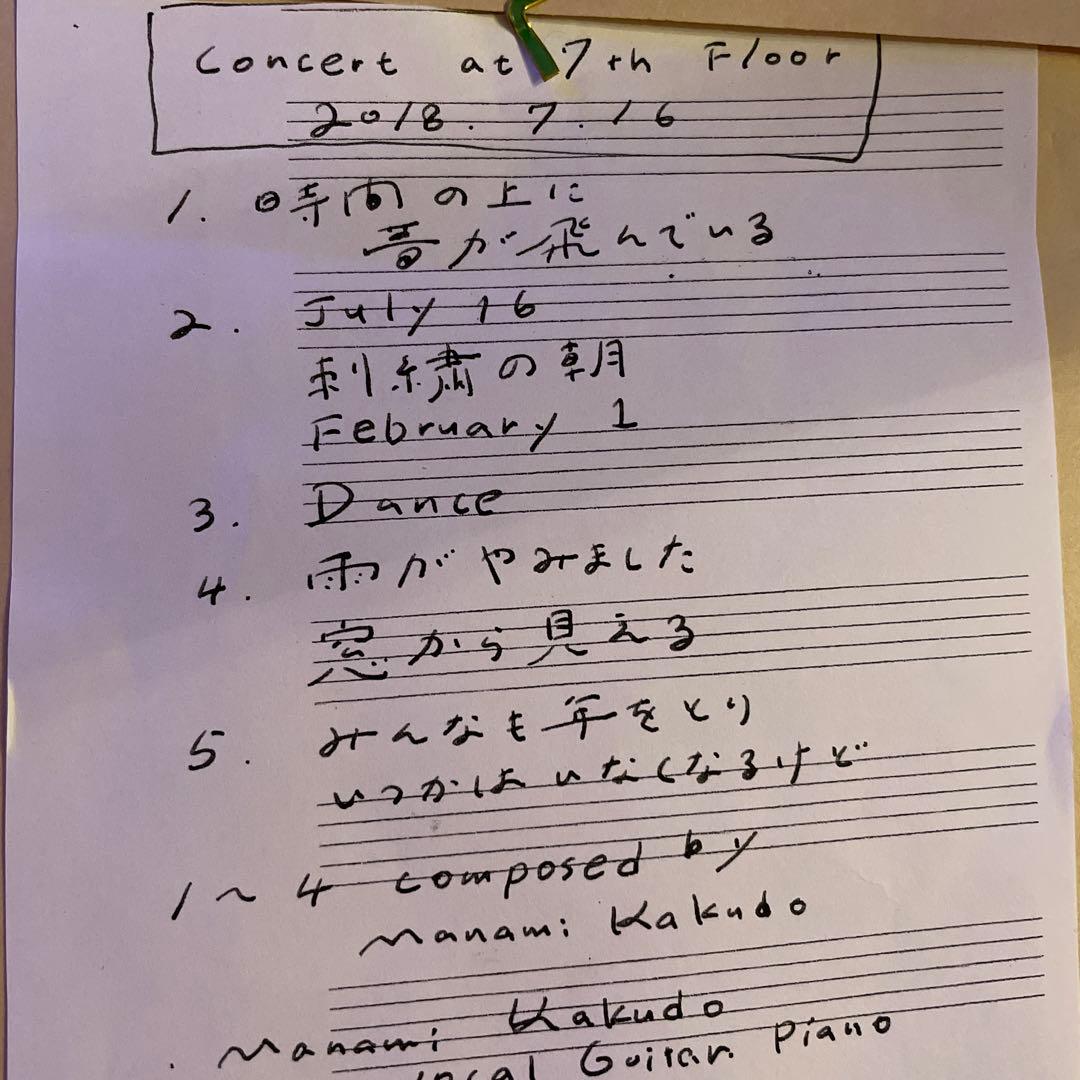 Concert at 7th Floor
2018. 7. 16
1. 時間の上に
音が飛んでいる
2. July 16
刺繍の朝
February 1
3. Dance
4. 雨がやみました
窓から見える
5. みんなも年をとり
いつかはいなくなるけど
1~4 composed by
Manami Kakudo
Manami Kakudo
Vocal Guitar Piano